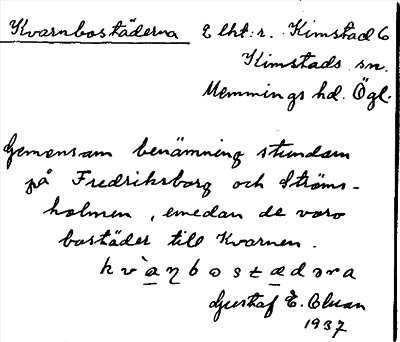 Kvarnbostäderna 2 lht:r. Kimstad 6
Kimstads sn.
Memmings hd. Ögl.
Gemensam benämning stundom
på Fredriksborg och Ströms-
holmen, emedan de voro
bostäder till Kvarnen.
Gustaf E.
1937